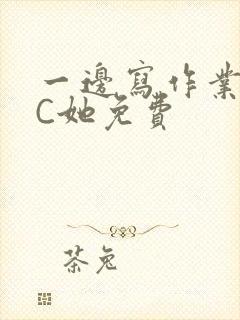 一邊寫作業
C她免費
茶兔